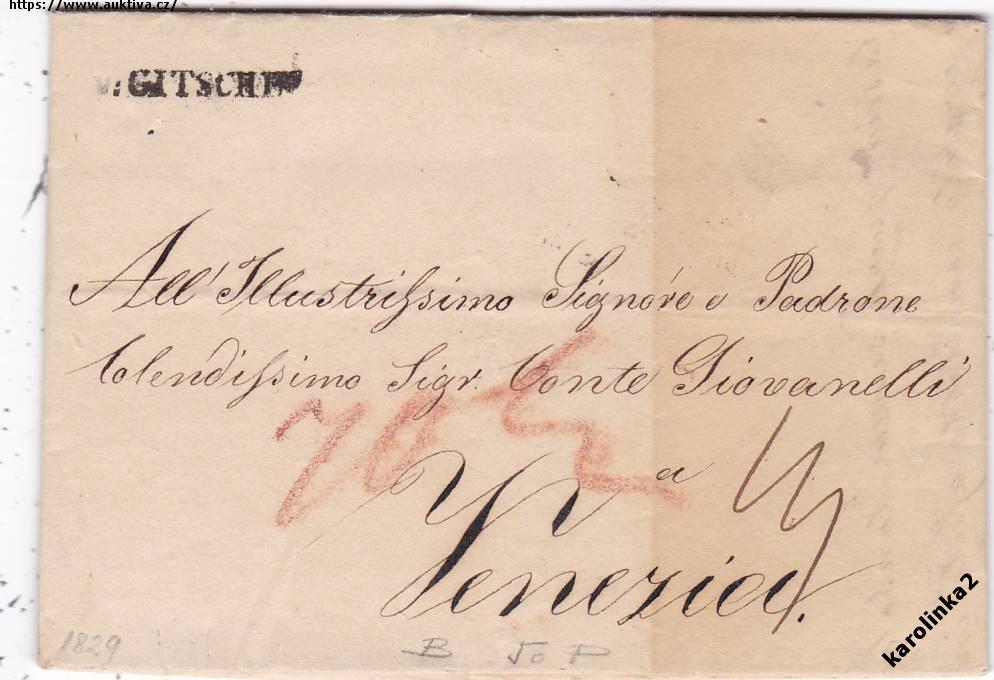 https://www.auktiva.cz/
v:GITSCHIN
All' Illustrissimo Signóre e Padrone
Colendissimo Sigr. Conte Giovanelli
a
Venezia.
1829
B
karolinka2